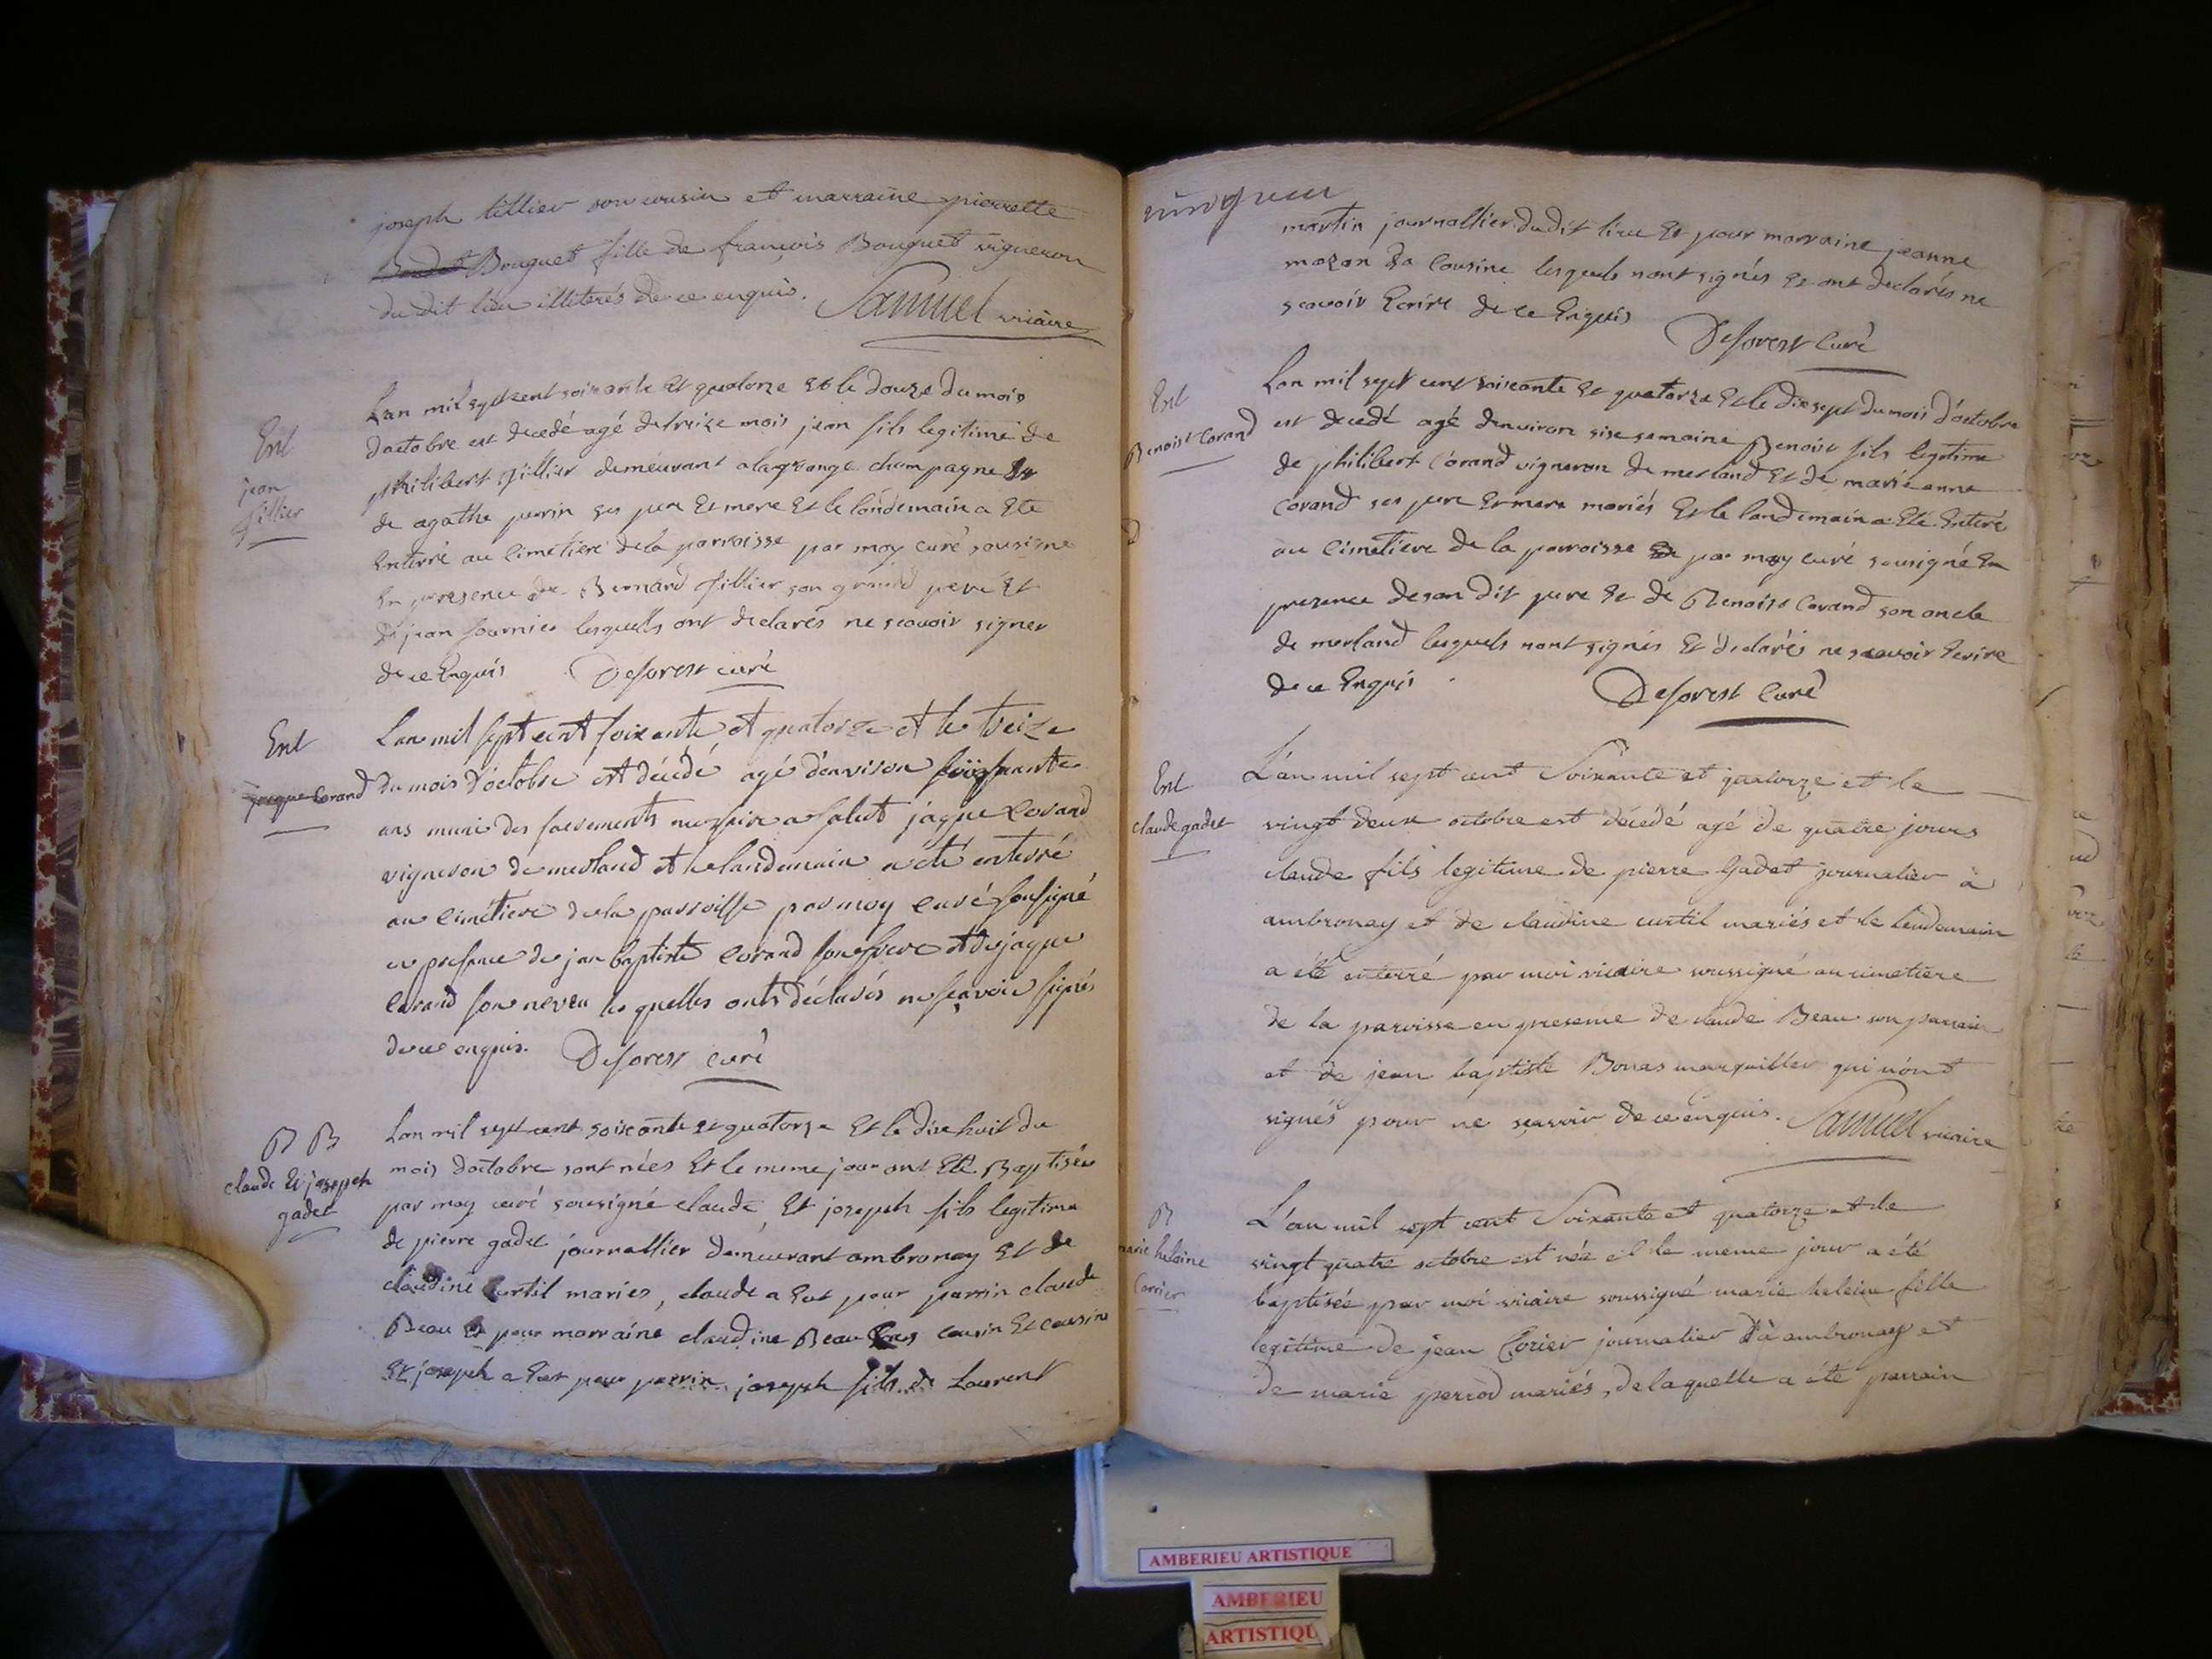 joseph tillier son cousin et marraine pierrette
Bouguet fille de françois Bouguet vigneron
du dit lieu illiterés de ce enquis. Samuel vicaire
Ent
jean
fillier
Lan mil sept cent soixante Et quatorze Et le douze du mois
doctobre est decedé agé de treize mois jean fils legitime de
philibert fillier demeurant a la grange champagne Et
de agathe perrin ses pere Et mere Et le landemain a Eté
Enterré au Cimetiere de la parroisse par moy curé sousigne
En presence de Bernard fillier son grand pere Et
de jean fournier lesquells ont declarés ne scavoir signer
de ce Enquis Deforest curé
Ent
jaque Corand
Lan mil sept cent soixante et quatorze et le treize
du mois d'octobre est décédé agé d'environ soixante
ans muni des sacrements jaque Corand
vigneron de merland et le landemain a été enterré
au cimétiere de la parroisse par moy curé sousigné
en presence de jan baptiste Corand son frere et de jaque
Corand son neveu les quelles onts déclarés ne sçavoir signés
de ce enquis. Deforest curé
B B
claude Et joseph
gadet
Lan mil sept cent soixante Et quatorze Et le dixe huit du
mois doctobre sont nées Et le meme jour ont Eté Baptisés
par moy curé sousigné claude, Et joseph fils legitime
de pierre gadet journallier demeurant ambronay Et de
claudine Curtil maries, claude a Eut pour parrin claude
Beau Et pour marraine claudine Beau cousin Et cousine
Et joseph a Eut pour parrin joseph fils de Laurent
martin journallier du dit lieu Et pour marraine jeanne
mazon Sa Cousine lesquels nont signés Et ont declarés ne
scavoir Ecrire de ce Enquis
Deforest Curé
Ent
Benoist Corand
Lan mil sept cent soixante Et quatorze Et le dixsept du mois d'octobre
est decedé agé denviron sixe semaine Benoist fils legitime
de philibert Corand vigneron de merland Et de marieanne
Corand ses pere Et mere mariés Et le landemain a Eté Enteré
au Cimetiere de la parroisse par moy curé sousigné En
presence de son dit pere Et de Benoist Corand son oncle
de merland lesquels nont signés Et declarés ne scavoir Ecrire
de ce Enquis
Deforest Curé
Ent
claude gadet
L'an mil sept cent Soixante et quatorze et le
vingt deux octobre est décédé agé de quatre jours
claude fils legitime de pierre Gadet journalier à
ambronay et de claudine curtil mariés et le lendemain
a été enterré par moi vicaire soussigné au cimetiere
de la paroisse en presence de claude Beau son parrain
et de jean baptiste Bonas marguiller qui n'ont
signés pour ne sçavoir de ce enquis. Samuel vicaire
B
marie heleine
Corrier
L'an mil sept cent Soixante et quatorze et le
vingt quatre octobre est née et le meme jour a été
baptisée par moi vicaire soussigné marie heleine fille
legitime de jean Corier journalier à ambronay et
de marie perrod mariés, de laquelle a été parrain
AMBERIEU ARTISTIQUE
AMBERIEU
ARTISTIQU